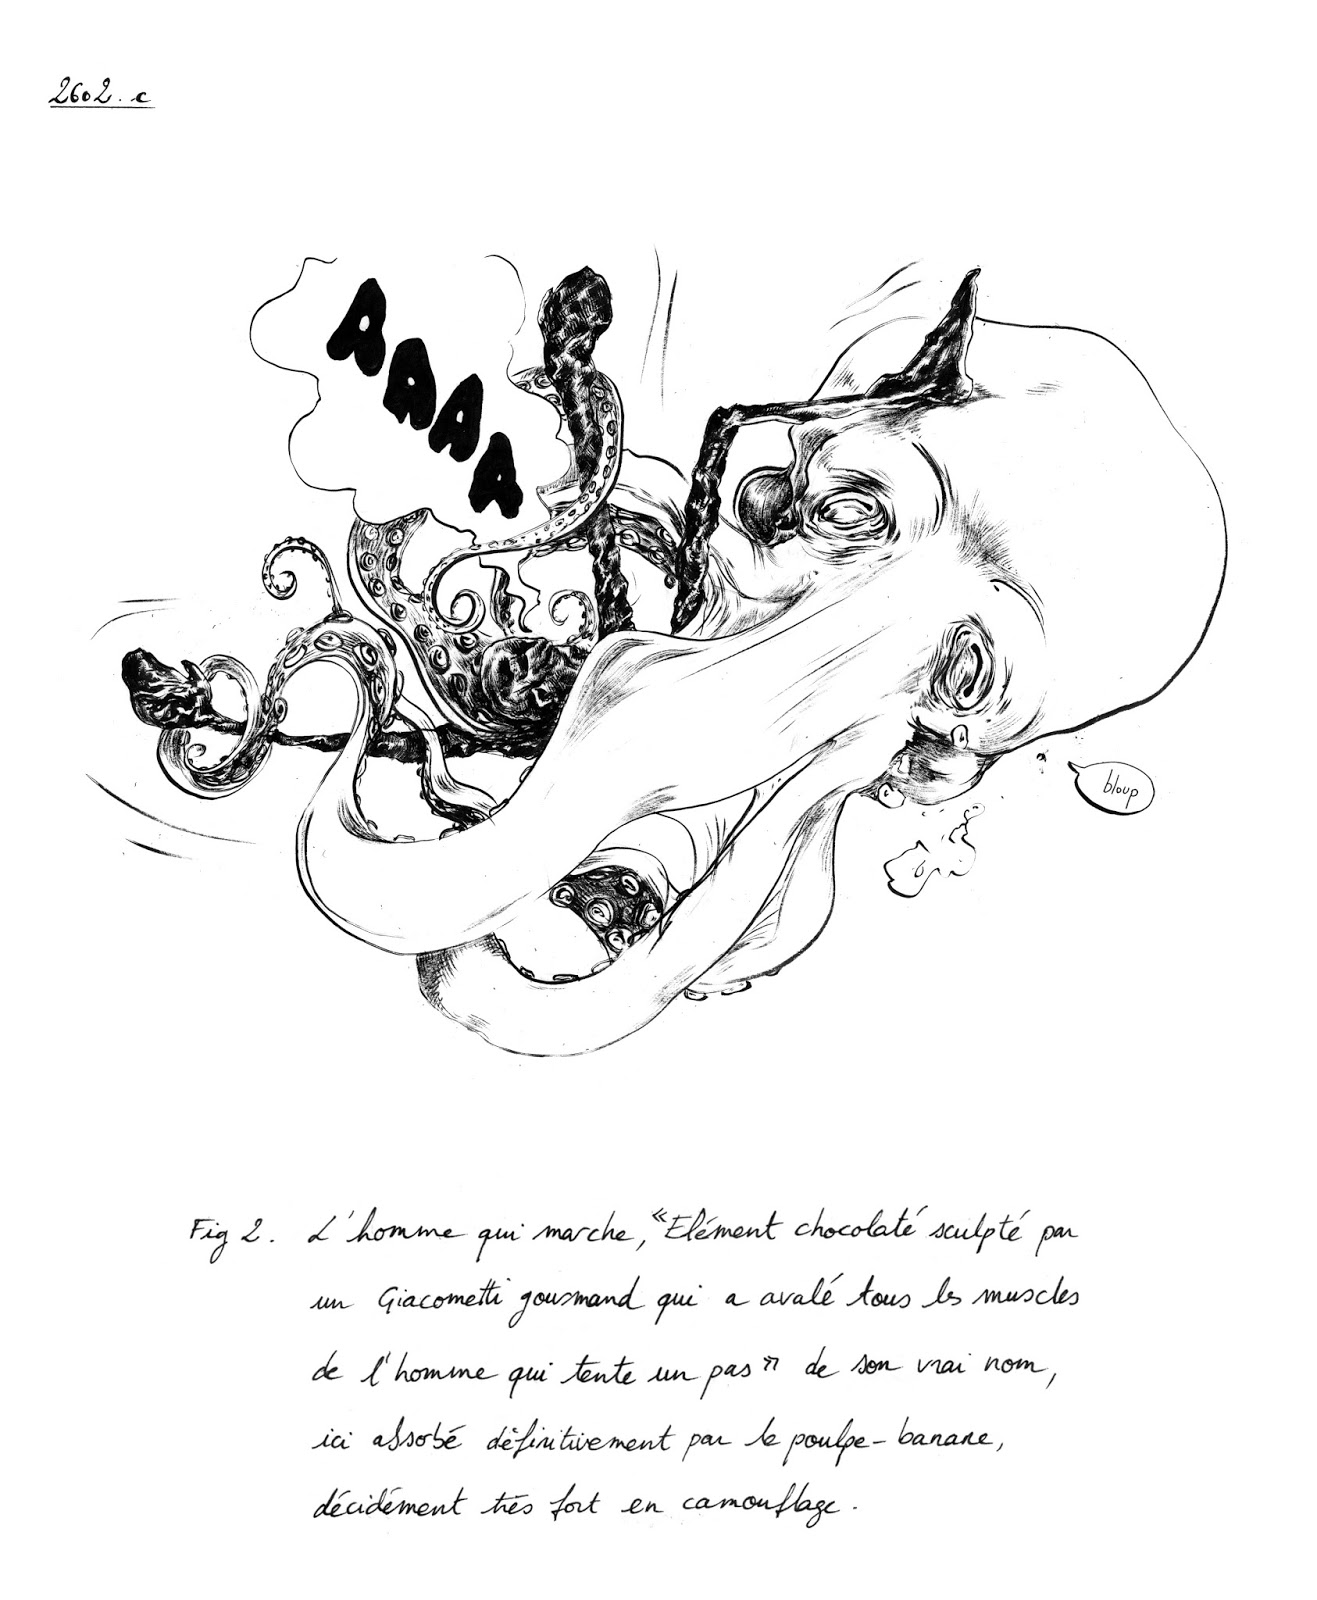 2602.c
AAAA
bloup
Fig 2. L'homme qui marche, "Elément chocolaté sculpté par
un Giacometti gourmand qui a avalé tous les muscles
de l'homme qui tente un pas" de son vrai nom,
ici absobé définitivement par le poulpe-banane,
décidément très fort en camouflage.